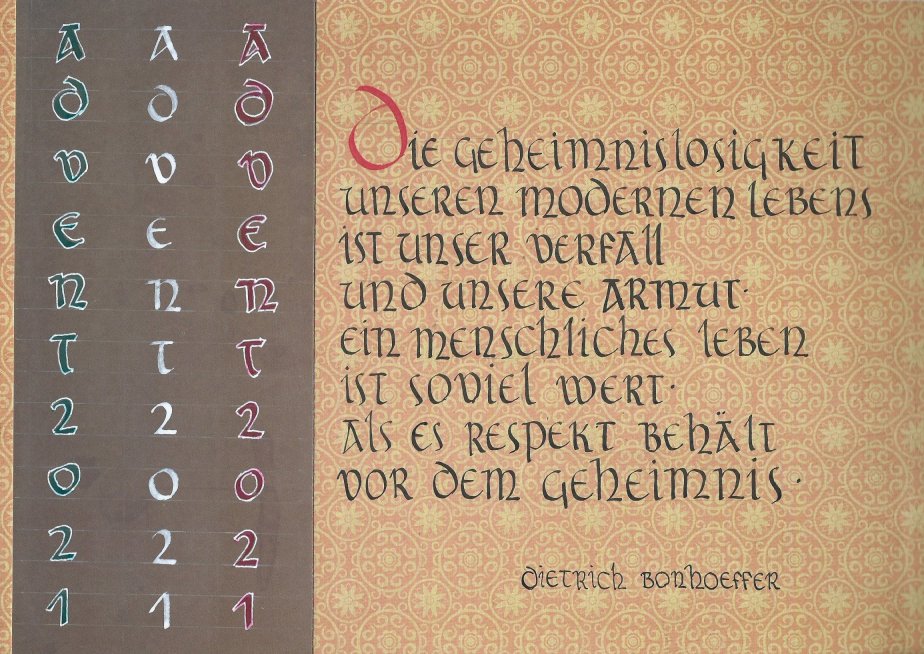 ADVENT2021
ADVENT2021
ADVENT2021
Die Geheimnislosigkeit
unseren modernen Lebens
ist unser Verfall
und unsere Armut.
Ein menschliches Leben
ist soviel wert.
Als es Respekt behält
vor dem Geheimnis.
Dietrich Bonhoeffer